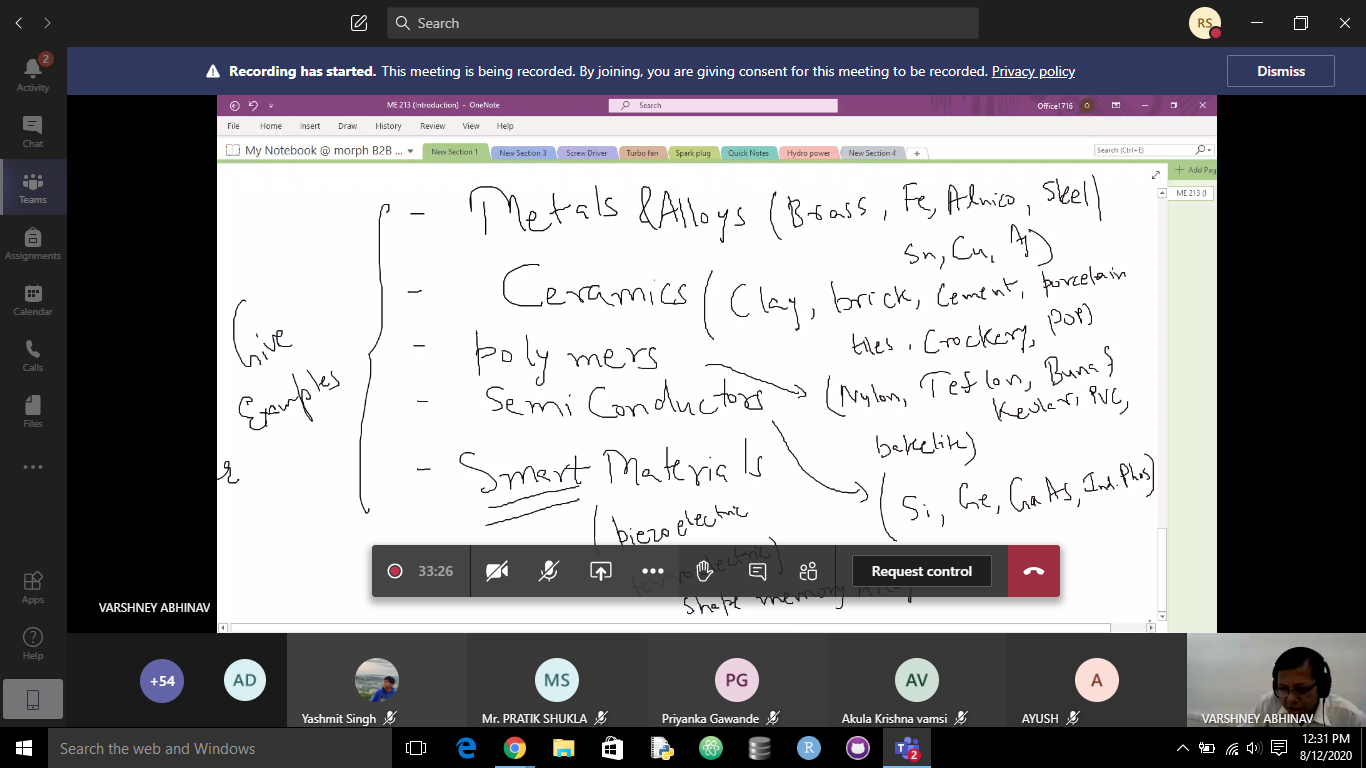 Search
RS
Recording has started. This meeting is being recorded. By joining, you are giving consent for this meeting to be recorded. Privacy policy
Dismiss
2
Activity
Chat
Teams
Assignments
Calendar
Calls
Files
Apps
Help
ME 213 (Introduction) - OneNote
Search
Office1716
O
File Home Insert Draw History Review View Help
My Notebook @ morph B2B ...
New Section 1 New Section 3 Screw Driver Turbo fan Spark plug Quick Notes Hydro power New Section 4 +
Search (Ctrl+E)
+ Add Pag
ME 213 (I
- Metals & Alloys (Brass, Fe, Alnico, Steel)
Sn, Cu, Ag)
- Ceramics (Clay, brick, Cement, porcelain
tiles, Crockery, POP)
- polymers
(Nylon, Teflon, Buna
Kevlar, PVC,
bakelite)
- Semi Conductors
(Si, Ge, GaAs, Ind. Phos)
- Smart Materials
(piezoelectric
ferroelectric)
shape memory Alloy
Give
Examples
33:26
Request control
VARSHNEY ABHINAV
+54
AD
Yashmit Singh
MS
Mr. PRATIK SHUKLA
PG
Priyanka Gawande
AV
Akula Krishna vamsi
A
AYUSH
VARSHNEY ABHINAV
Search the web and Windows
R
2
12:31 PM
8/12/2020